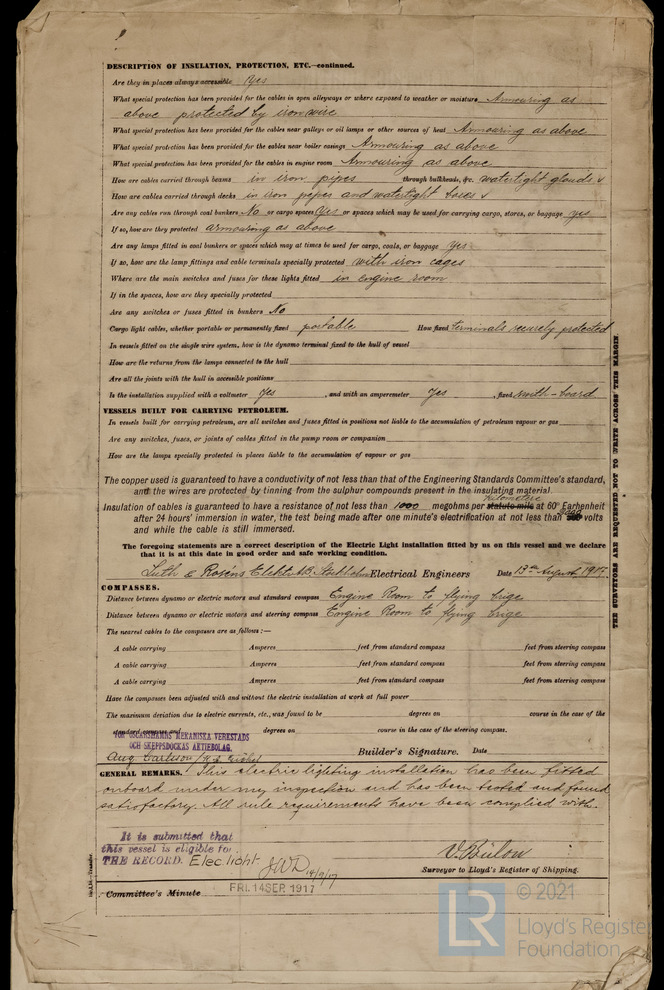 DESCRIPTION OF INSULATION, PROTECTION, ETC.—continued.
Are they in places always accessible Yes
What special protection has been provided for the cables in open alleyways or where exposed to weather or moisture Armouring as
above protected by iron wire
What special protection has been provided for the cables near galleys or oil lamps or other sources of heat Armouring as above
What special protection has been provided for the cables near boiler casings Armouring as above
What special protection has been provided for the cables in engine room Armouring as above
How are cables carried through beams in iron pipes through bulkheads, &c. watertight glands
How are cables carried through decks in iron pipes and watertight boxes
Are any cables run through coal bunkers No or cargo spaces Yes or spaces which may be used for carrying cargo, stores, or baggage yes
If so, how are they protected armouring as above
Are any lamps fitted in coal bunkers or spaces which may at times be used for cargo, coals, or baggage Yes
If so, how are the lamp fittings and cable terminals specially protected with iron cages
Where are the main switches and fuses for these lights fitted in engine room
If in the spaces, how are they specially protected
Are any switches or fuses fitted in bunkers No
Cargo light cables, whether portable or permanently fixed portable How fixed terminals securely protected
In vessels fitted on the single wire system, how is the dynamo terminal fixed to the hull of vessel
How are the returns from the lamps connected to the hull
Are all the joints with the hull in accessible positions
Is the installation supplied with a voltmeter Yes , and with an amperemeter Yes , fixed swith-board
VESSELS BUILT FOR CARRYING PETROLEUM.
In vessels built for carrying petroleum, are all switches and fuses fitted in positions not liable to the accumulation of petroleum vapour or gas
Are any switches, fuses, or joints of cables fitted in the pump room or companion
How are the lamps specially protected in places liable to the accumulation of vapour or gas
The copper used is guaranteed to have a conductivity of not less than that of the Engineering Standards Committee's standard,
and the wires are protected by tinning from the sulphur compounds present in the insulating material.
kilometere
Insulation of cables is guaranteed to have a resistance of not less than 1000 megohms per statute mile at 60° Farhenheit
after 24 hours' immersion in water, the test being made after one minute's electrification at not less than volts
and while the cable is still immersed.
The foregoing statements are a correct description of the Electric Light installation fitted by us on this vessel and we declare
that it is at this date in good order and safe working condition.
Luth & Roséns Elektr. A.B. Stockholm Electrical Engineers Date 13th August 1917
COMPASSES.
Distance between dynamo or electric motors and standard compass Engine Room to flying brige
Distance between dynamo or electric motors and steering compass Engine Room to flying brige
The nearest cables to the compasses are as follows:—
A cable carrying Amperes feet from standard compass feet from steering compass
A cable carrying Amperes feet from standard compass feet from steering compass
A cable carrying Amperes feet from standard compass feet from steering compass
Have the compasses been adjusted with and without the electric installation at work at full power
The maximum deviation due to electric currents, etc., was found to be degrees on course in the case of the
standard compass and degrees on course in the case of the steering compass.
FÖR OSCARSHAMNS MEKANISKA VERKSTADS
OCH SKEPPSDOCKAS AKTIEBOLAG.
Aug Carlsson Builder's Signature. Date
GENERAL REMARKS. This electric lighting installation has been fitted
onboard under my inspection and has been tested and found
satisfactory. All rule requirements have been complied with.
It is submitted that
this vessel is eligible for
THE RECORD. Elec light JWD 14/9/17
V. Bülow
Surveyor to Lloyd's Register of Shipping.
Committee's Minute FRI. 14 SEP. 1917
THE SURVEYORS ARE REQUESTED NOT TO WRITE ACROSS THIS MARGIN
LR
© 2021
Lloyd's Register
Foundation